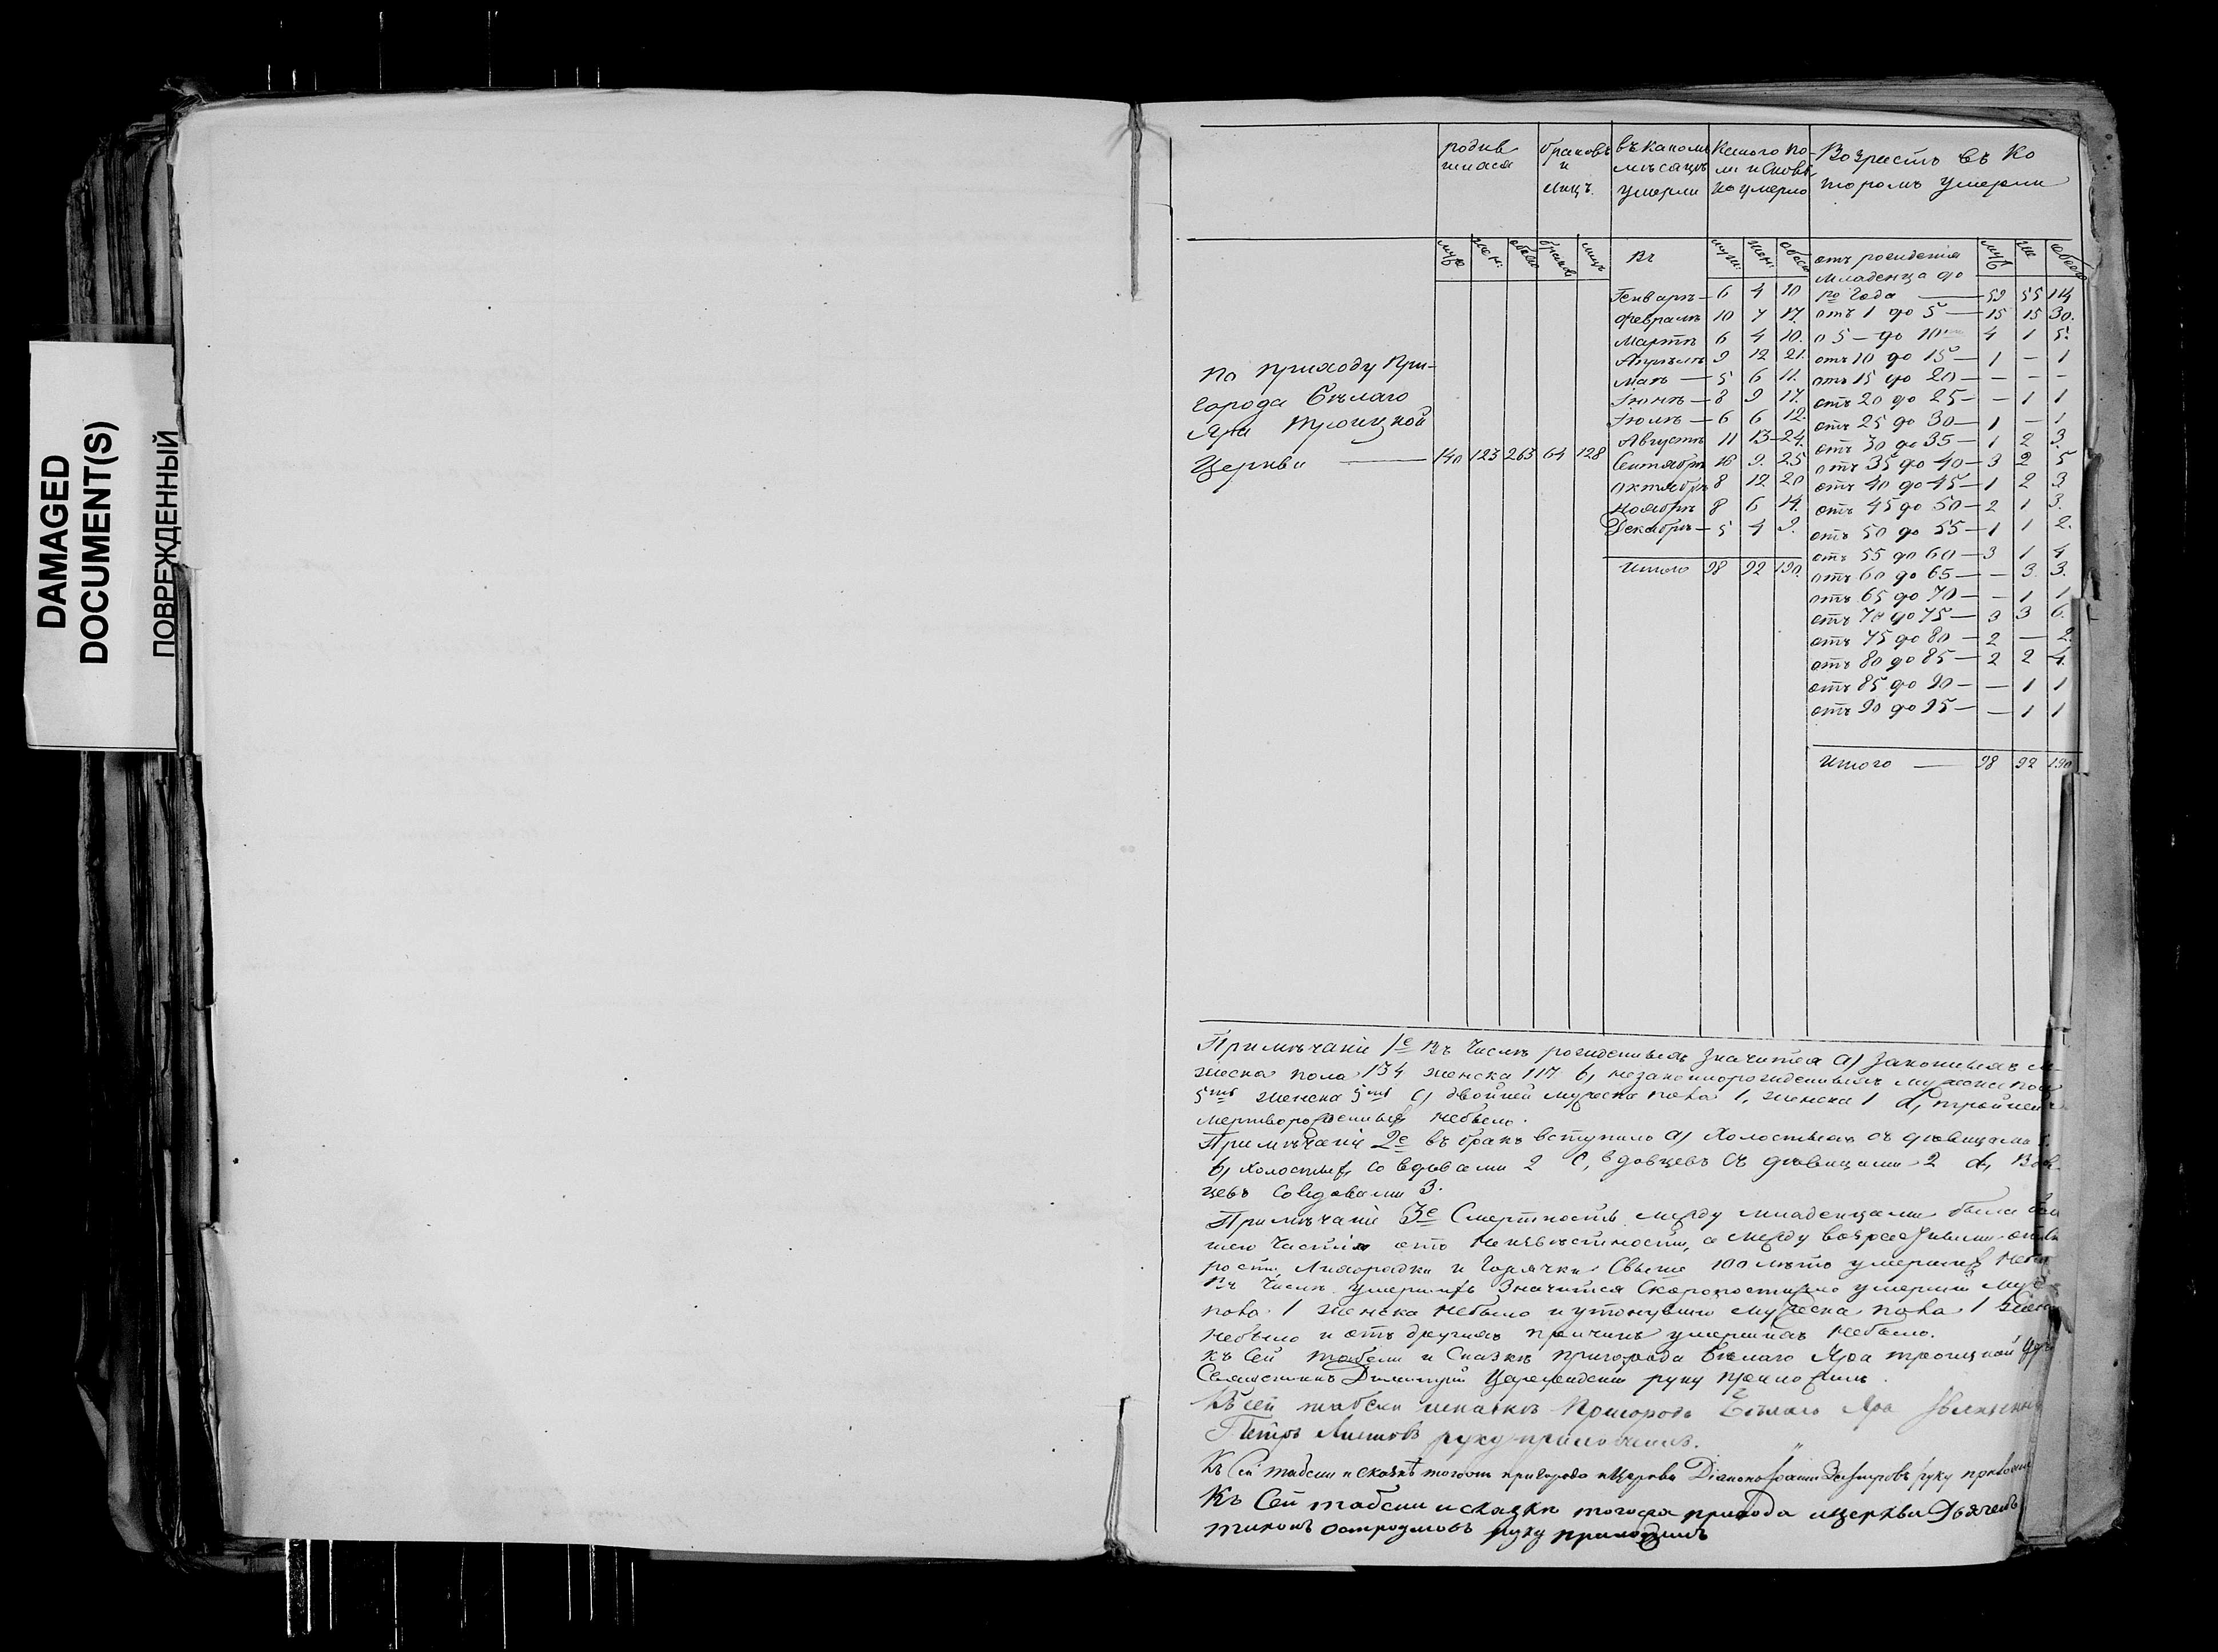 DAMAGED
DOCUMENT(S)
ПОВРЕЖДЕННЫЙ
родив браковъ въ каком Коего по- Возрастъ въ ко
шиася и мѣсяцѣ ла и сколь торомъ умерли
лицъ. умерли ко умерло
муж жен: обоего браков лицъ Въ муж: жен: обоего отъ рожденія муж жен обоего
младенца до
Генварѣ — 6 4 10 го года — 59 55 114
Февралѣ 10 7 17. отъ 1 до 5 — 15 15 30.
Мартѣ 6 4 10. о 5 — до 10 4 1 5.
Апрѣлѣ 9 12 21. отъ 10 до 15 — 1 — 1
По приходу При-
Маѣ — 5 6 11. отъ 15 до 20 — — — —
города Бѣлаго
Іюнѣ — 8 9 17. отъ 20 до 25 — — 1 1
Іюлѣ — 6 6 12. отъ 25 до 30 — 1 — 1
Яра Троицкой
Августѣ 11 13 24. отъ 30 до 35 — 1 2 3.
Церкви — 140 123 263 64 128 Сентябрѣ 16 9. 25 отъ 35 до 40 — 3 2 5
Октябрѣ 8 12 20 отъ 40 до 45 — 1 2 3
Ноябрѣ 8 6 14. отъ 45 до 50 — 2 1 3.
Декабрѣ — 5 4 9. отъ 50 до 55 — 1 1 2.
отъ 55 до 60 — 3 1 4
Итого 98 92 190. отъ 60 до 65 — — 3. 3.
отъ 65 до 70 — — 1 1
отъ 70 до 75 — 3 3 6.
отъ 75 до 80 — 2 — 2.
отъ 80 до 85 — 2 2 4.
отъ 85 до 90 — — 1 1
отъ 90 до 95 — — 1 1
Итого — 98 92 190
Примѣчаніе 1е Въ числѣ рожденныхъ значится а) законныхъ м-
жеска пола 134 женска 117 b, незаконнорожденныхъ
5ть женска 5ть c, двойней мужеска пола 1, женска 1 d, тройней
мертворожденныхъ небыло.
Примѣчаніе 2е въ бракъ вступило а) Холостыхъ съ дѣвицами
b, холостыхъ со вдовами 2 c, вдовцевъ съ дѣвицами 2 d, Вдов
цевъ со вдовами 3.
Примѣчаніе 3е Смертность между младенцами была бол
шею частію отъ неизвѣстности, а между возрастными отъ
рости, Лихорадки и Горячки Свыше 100 лѣтъ умершихъ небы
Въ числѣ умершихъ Значится Скоропостижно умершій муж
пола 1 женска небыло и утонувши мужеска пола 1 жен
небыло и отъ другихъ причинъ умершихъ небыло.
Къ сей табели и Сказкѣ пригорода Бѣлаго Яра Троицкой Цер
Священникъ Димитрій руку приложилъ.
Къ сей табели и сказкѣ Пригорода Бѣлаго Яра Священникъ
Петръ руку приложилъ.
Къ Сей табели и сказкѣ тогожъ пригорода и Церкви Діаконъ руку приложилъ
Къ Сей табели и сказкѣ тогожъ прихода и церкви Дьячекъ
Тихонъ руку приложилъ